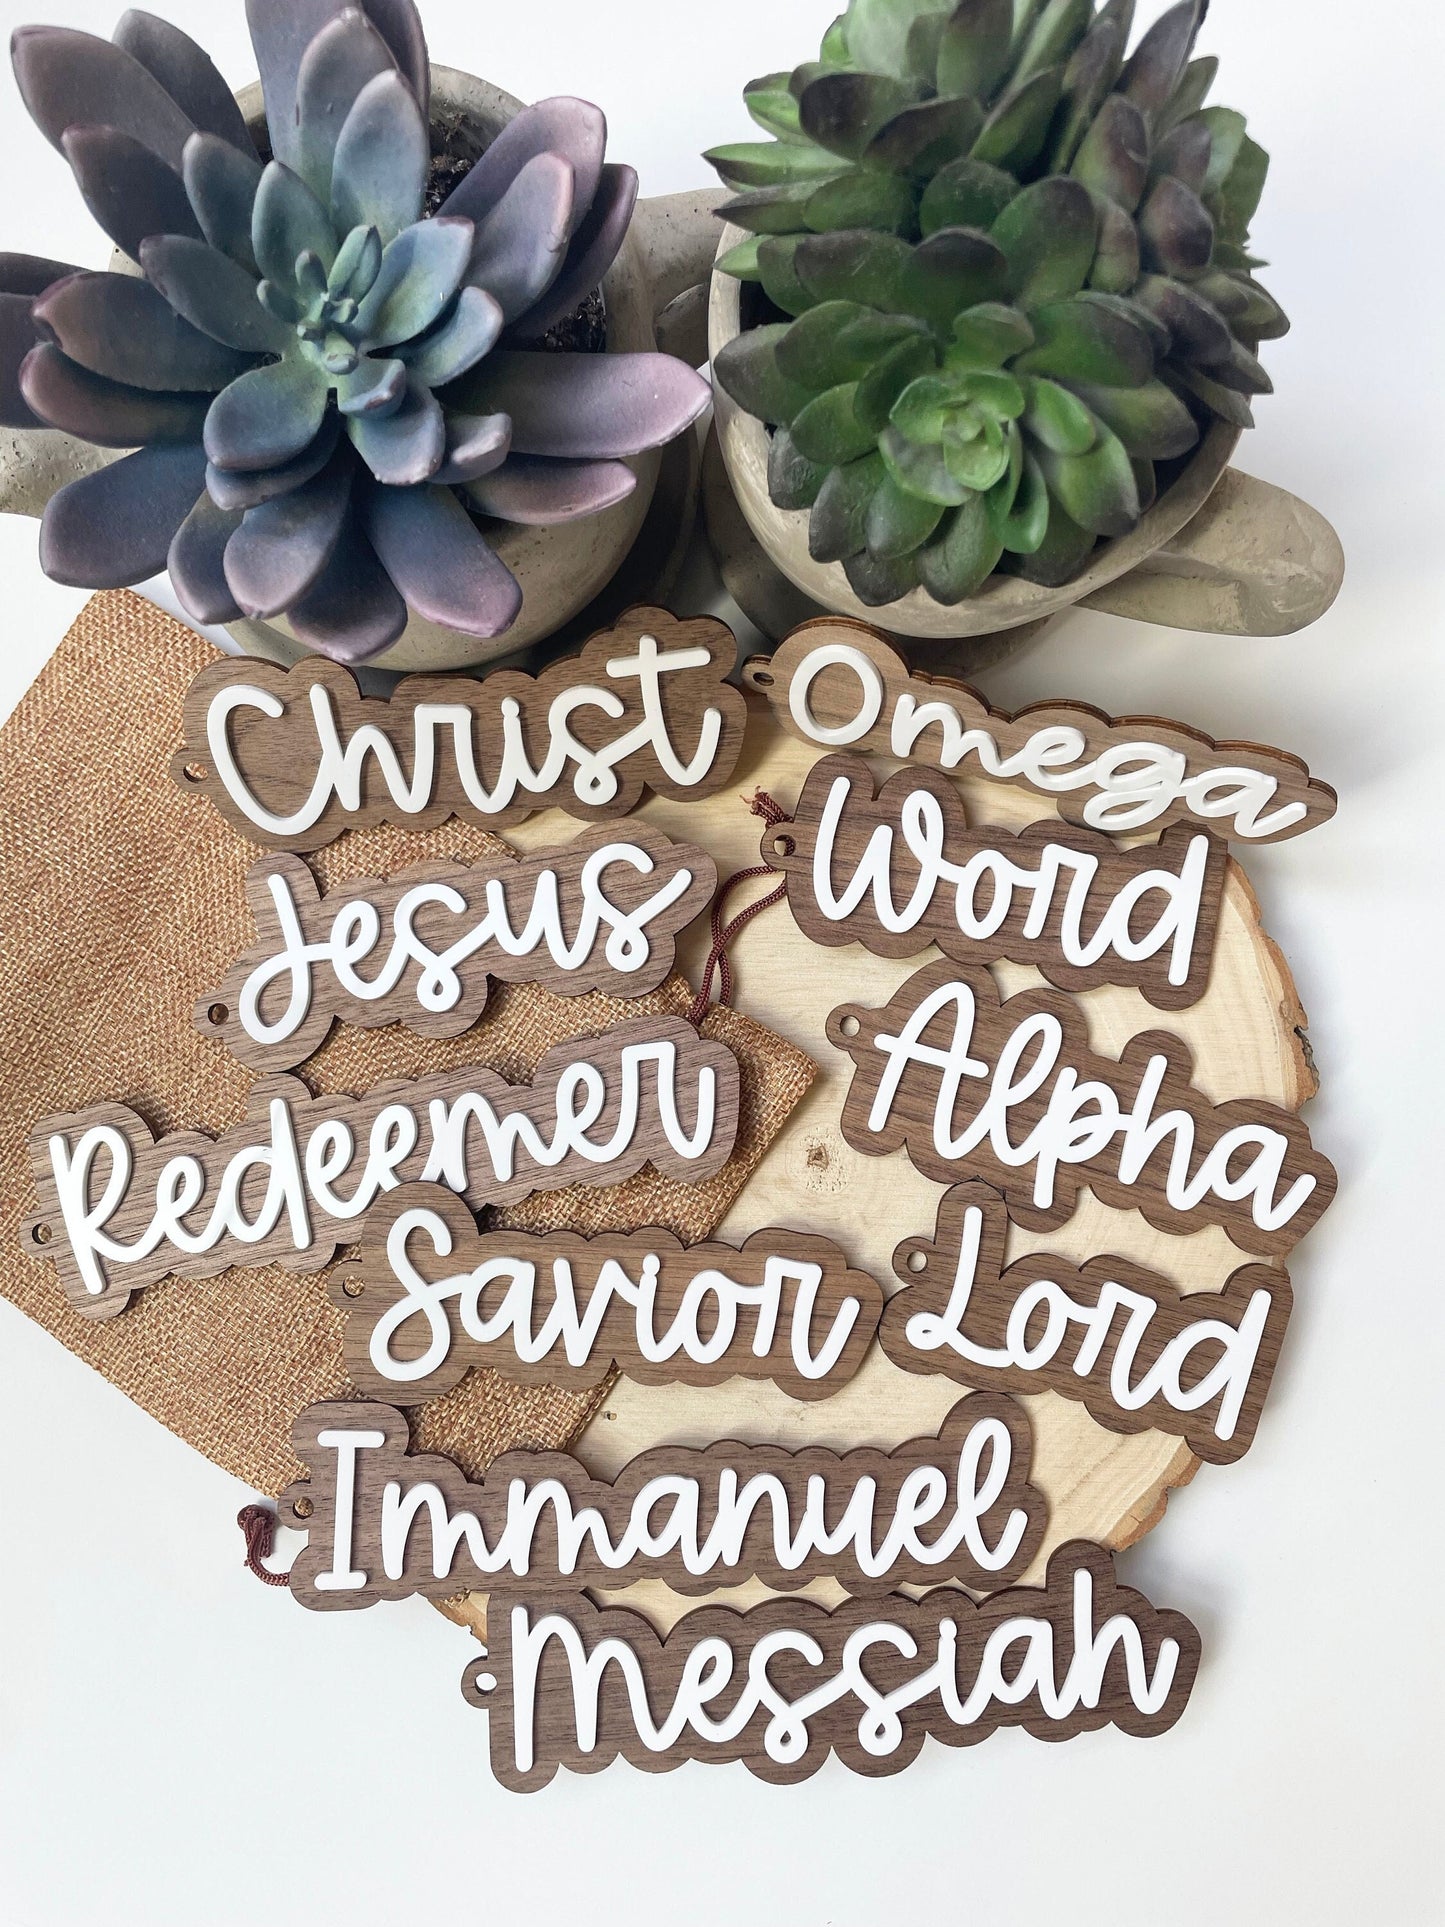 Christ
Omega
Word
Jesus
Alpha
Redeemer
Savior
Lord
Immanuel
Messiah